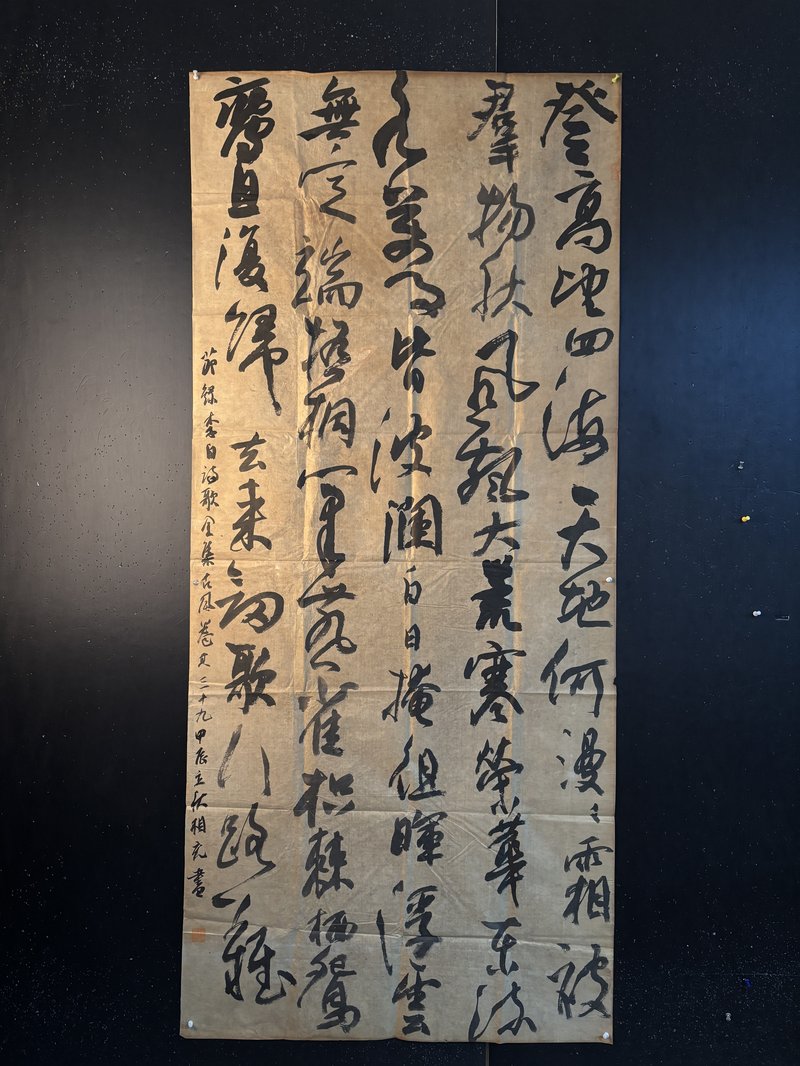 登高望四海天地何漫々霜被
羣物秋風飄大荒寒榮華東流
水萬事皆波瀾白日掩徂暉浮雲
無定端梧桐巢燕雀枳棘栖鴛
鸞且復歸去来劍歌行路難
節錄李白詩歌全集古風卷其三十九甲辰立秋相書